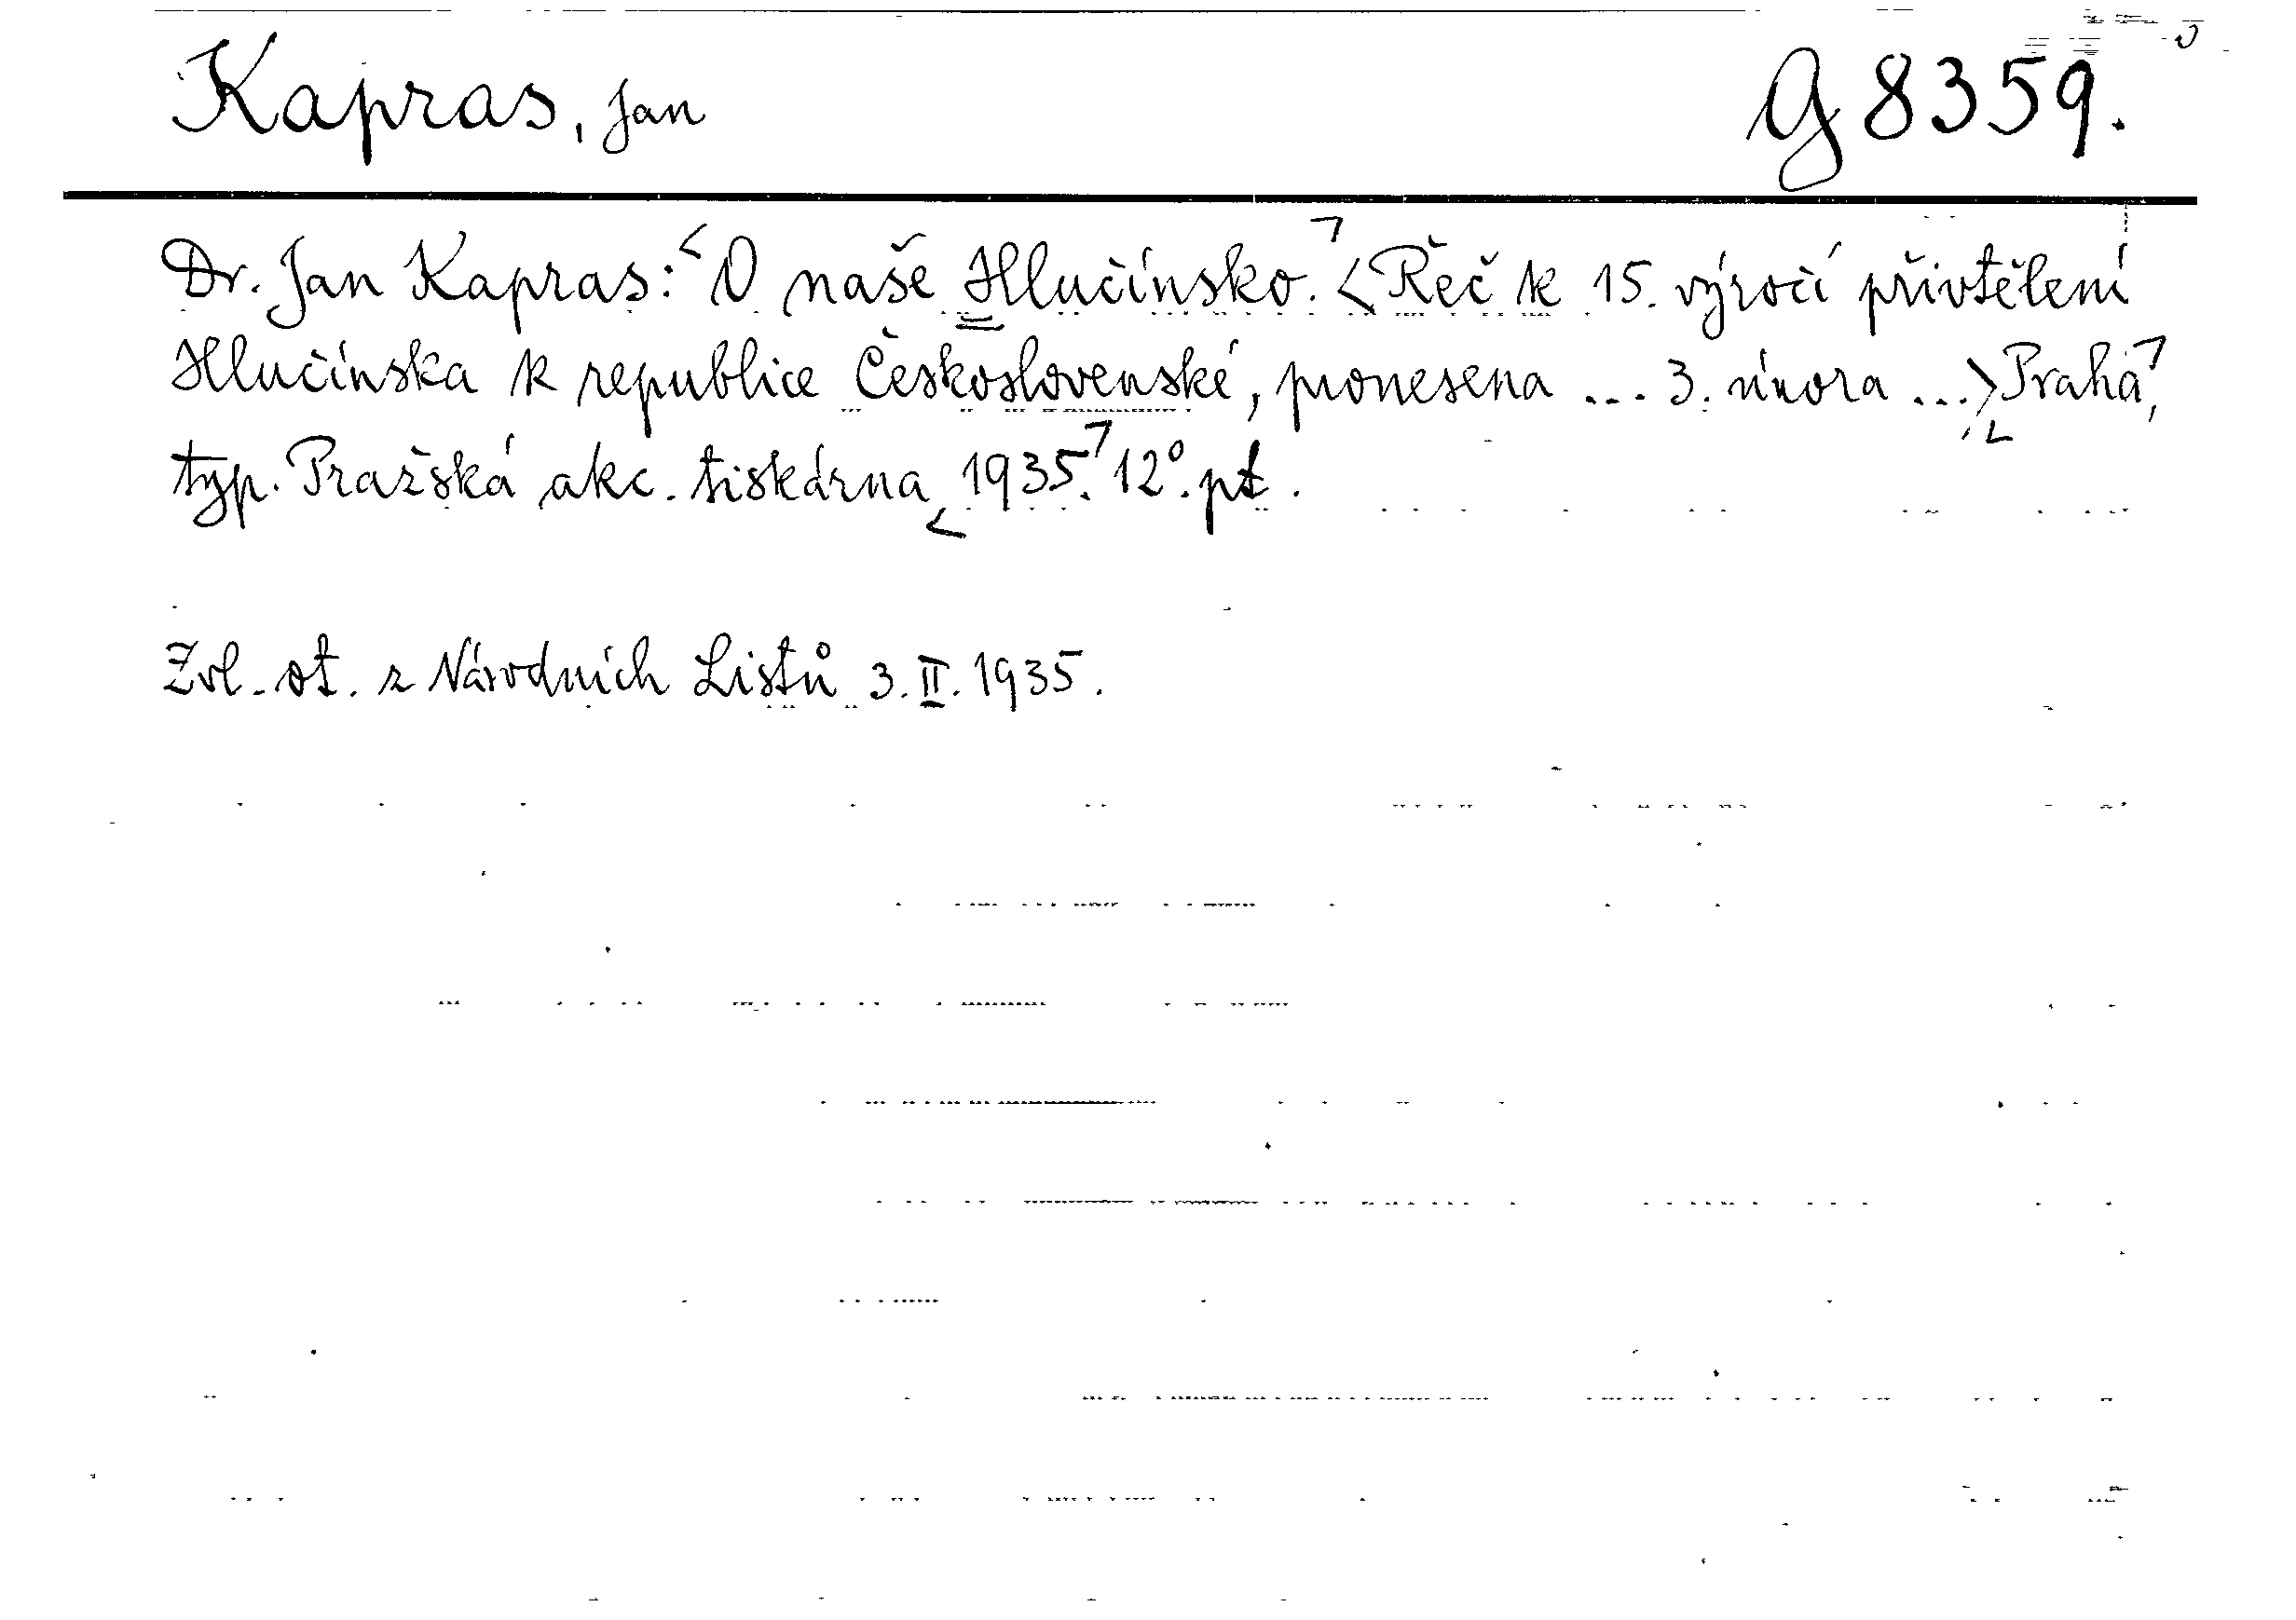 Kapras, Jan G 8359.
Dr. Jan Kapras: O naše Hlučínsko. <Řeč k 15. výročí přivtělení
Hlučínska k republice Československé, pronesena ... 3. února ...> Praha,
typ. Pražská akc. tiskárna, 1935. 12°. pt.
Zvl. ot. z Národních Listů 3. II. 1935.